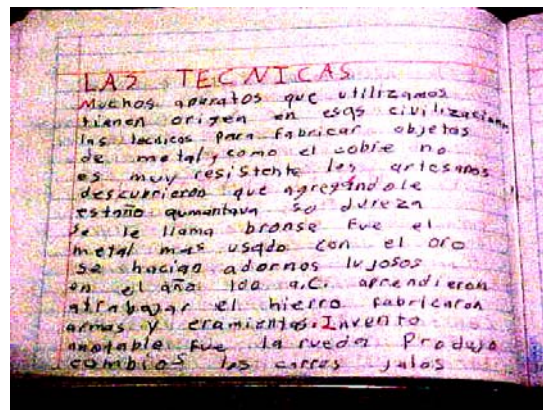 LAS TECNICAS
Muchos aparatos que utilizamos
tienen origen en esas civilizaciones
las tecnicos para fabricar objetos
de metal, como el cobre no
es muy resistente los artesanos
descubrieron que agregándole
estaño aumantava so dureza
se le llama bronse fue el
metal mas usado con el oro
se hacian adornos lujosos
en el año 100 a.C. aprendieron
atrabajar el hierro fabricaron
armas y eramientas. Invento
anotable fue la rueda Produjo
cambios los carros jalos